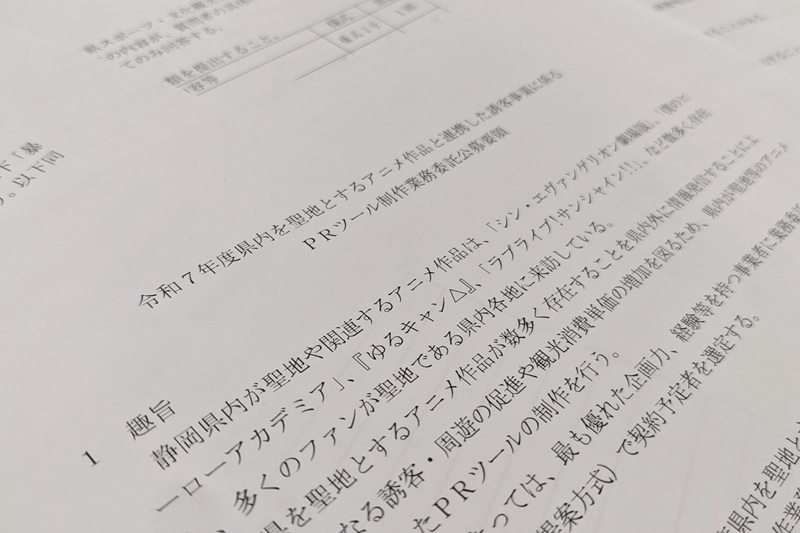 県スポーツ・文化観
の内容が、質問者の具体
てのみ回答する。
類を提出すること。
容等
様式
様式1号
1部
下「暴
。以下同
令和7年度県内を聖地とするアニメ作品と連携した誘客事業に係る
PRツール制作業務委託公募要領
1 趣旨
静岡県内が聖地や関連するアニメ作品は、「シン・エヴァンゲリオン劇場版」、「僕のヒ
ーローアカデミア」、『ゆるキャン△』、「ラブライブ!サンシャイン!!」、など数多く存在
、多くのファンが聖地である県内各地に来訪している。
県を聖地とするアニメ作品が数多く存在することを県内外に情報発信することによ
なる誘客・周遊の促進や観光消費単価の増加を図るため、県内が聖地等のアニメ
たPRツールの制作を行う。
っては、最も優れた企画力、経験等を持つ事業者に業務委
提案方式）で契約予定者を選定する。
県内を聖地と
作業務